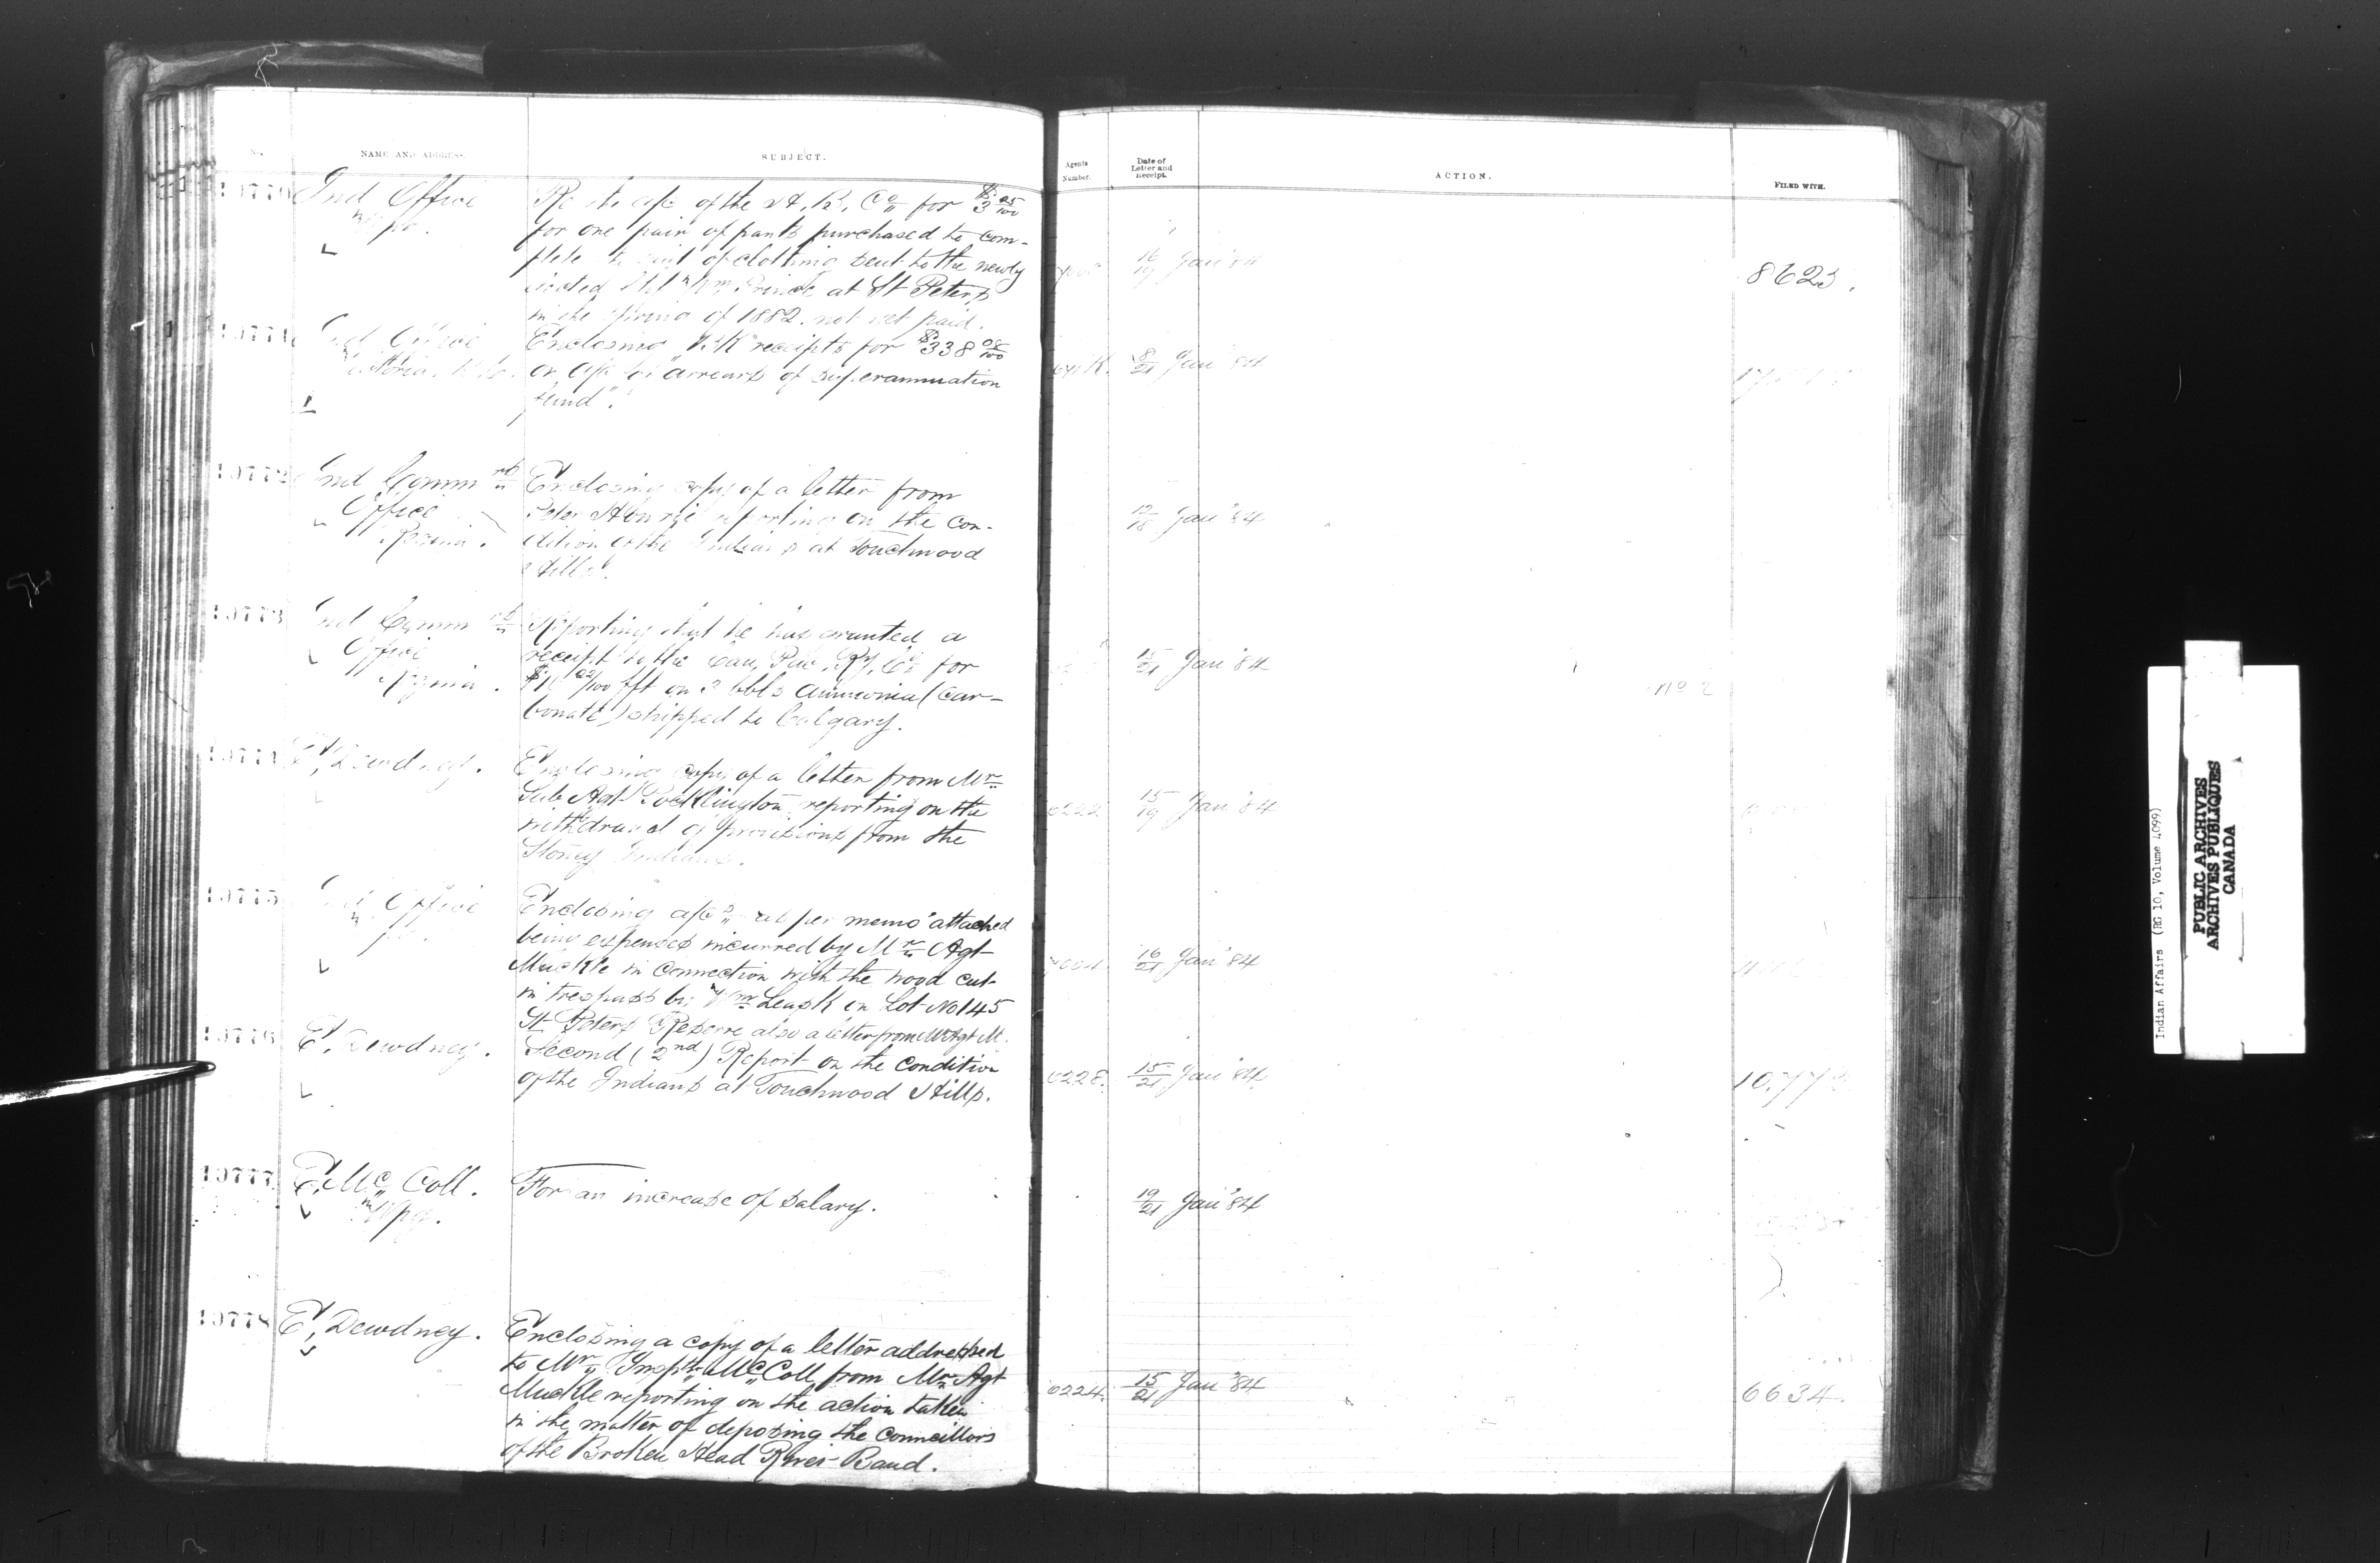 NAME AND ADDRESS.
SUBJECT.
Agents Number.
Date of Letter and Receipt.
ACTION.
FILED WITH.
10770
Ind Office
Wpg.
Re the a/c of the H. B. Co for $3 25/100
for one pair of pants purchased to com-
plete the suit of clothing sent to the newly
Wm Prince at St Peters
in the spring of 1882. not yet paid.
16/19 Jan '84
8623.
10771
Ind Office
Victoria B.C.
Enclosing receipts for $338 08/100
on a/c of "arrears of superannuation
fund".
8/21 Jan '84
10772
Ind Commrs
Office
Regina.
Enclosing copy of a letter from
Peter reporting on the con-
dition of the Indians at Touchwood
Hills.
12/18 Jan '84
10773
Ind Commrs
Office
Regina.
Reporting that he has granted a
receipt to the Can. Pac. Ry. Co for
fft on 2 bbls ammonia (Car-
bonate) shipped to Calgary.
15/21 Jan '84
No 2
10774
E. Dewdney.
Enclosing copy of a letter from Mr
Sub Agt Pocklington reporting on the
withdrawal of provisions from the
Stoney Indians.
6222
15/19 Jan '84
10775
Ind Office
Enclosing a/cs as per memo attached
being expenses incurred by Mr Agt
Muckle in connection with the wood cut
in trespass by Wm Leask on Lot No 145
St Peters Reserve also a letter from Mr Agt M.
16/21 Jan '84
10776
E. Dewdney.
Second (2nd) Report on the condition
of the Indians at Touchwood Hills.
6228.
15/21 Jan '84
10777
E. McColl.
Wpg.
For an increase of salary.
19/21 Jan '84
10778
E. Dewdney.
Enclosing a copy of a letter addressed
to Mr Inspr McColl from Mr Agt
Muckle reporting on the action taken
in the matter of deposing the councillors
of the Broken Head River Band.
6224.
15/21 Jan '84
6634.
Indian Affairs (RG 10, Volume 4099)
PUBLIC ARCHIVES
ARCHIVES PUBLIQUES
CANADA